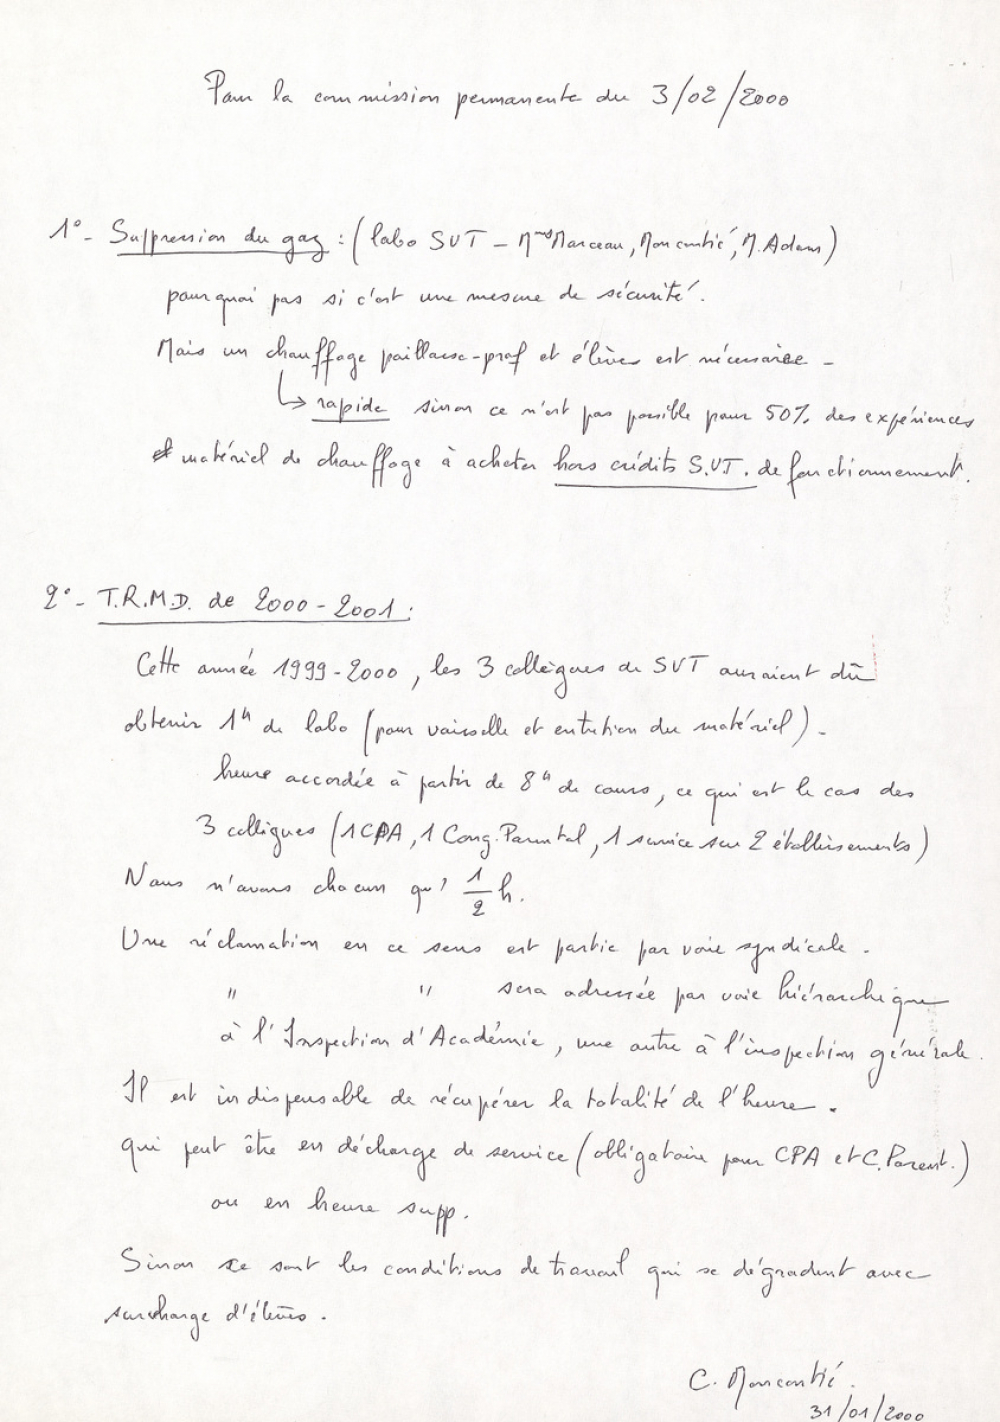 Pour la commission permanente du 3/02/2000
1° - Suppression du gaz : (labo SVT - Mmes Marceau, Moncontié, M. Adam)
pourquoi pas si c'est une mesure de sécurité.
Mais un chauffage paillasse-prof et élèves est nécessaire -
↳ rapide sinon ce n'est pas possible pour 50% des expériences
et matériel de chauffage à acheter hors crédits S.V.T. de fonctionnement.
2° - T.R.M.D. de 2000-2001 :
Cette année 1999-2000, les 3 collègues de SVT auraient dû
obtenir 1h de labo (pour vaisselle et entretien du matériel) -
heure accordée à partir de 8h de cours, ce qui est le cas des
3 collègues (1 CPA, 1 Cong. Parental, 1 service sur 2 établissements)
Nous n'avons chacun qu' 1/2 h.
Une réclamation en ce sens est partie par voie syndicale -
" " sera adressée par voie hiérarchique
à l'Inspection d'Académie, une autre à l'inspection générale.
Il est indispensable de récupérer la totalité de l'heure.
qui peut être en décharge de service (obligatoire pour CPA et C. Parent.)
ou en heure supp.
Sinon ce sont les conditions de travail qui se dégradent avec
surcharge d'élèves.
C. Moncontié.
31/01/2000